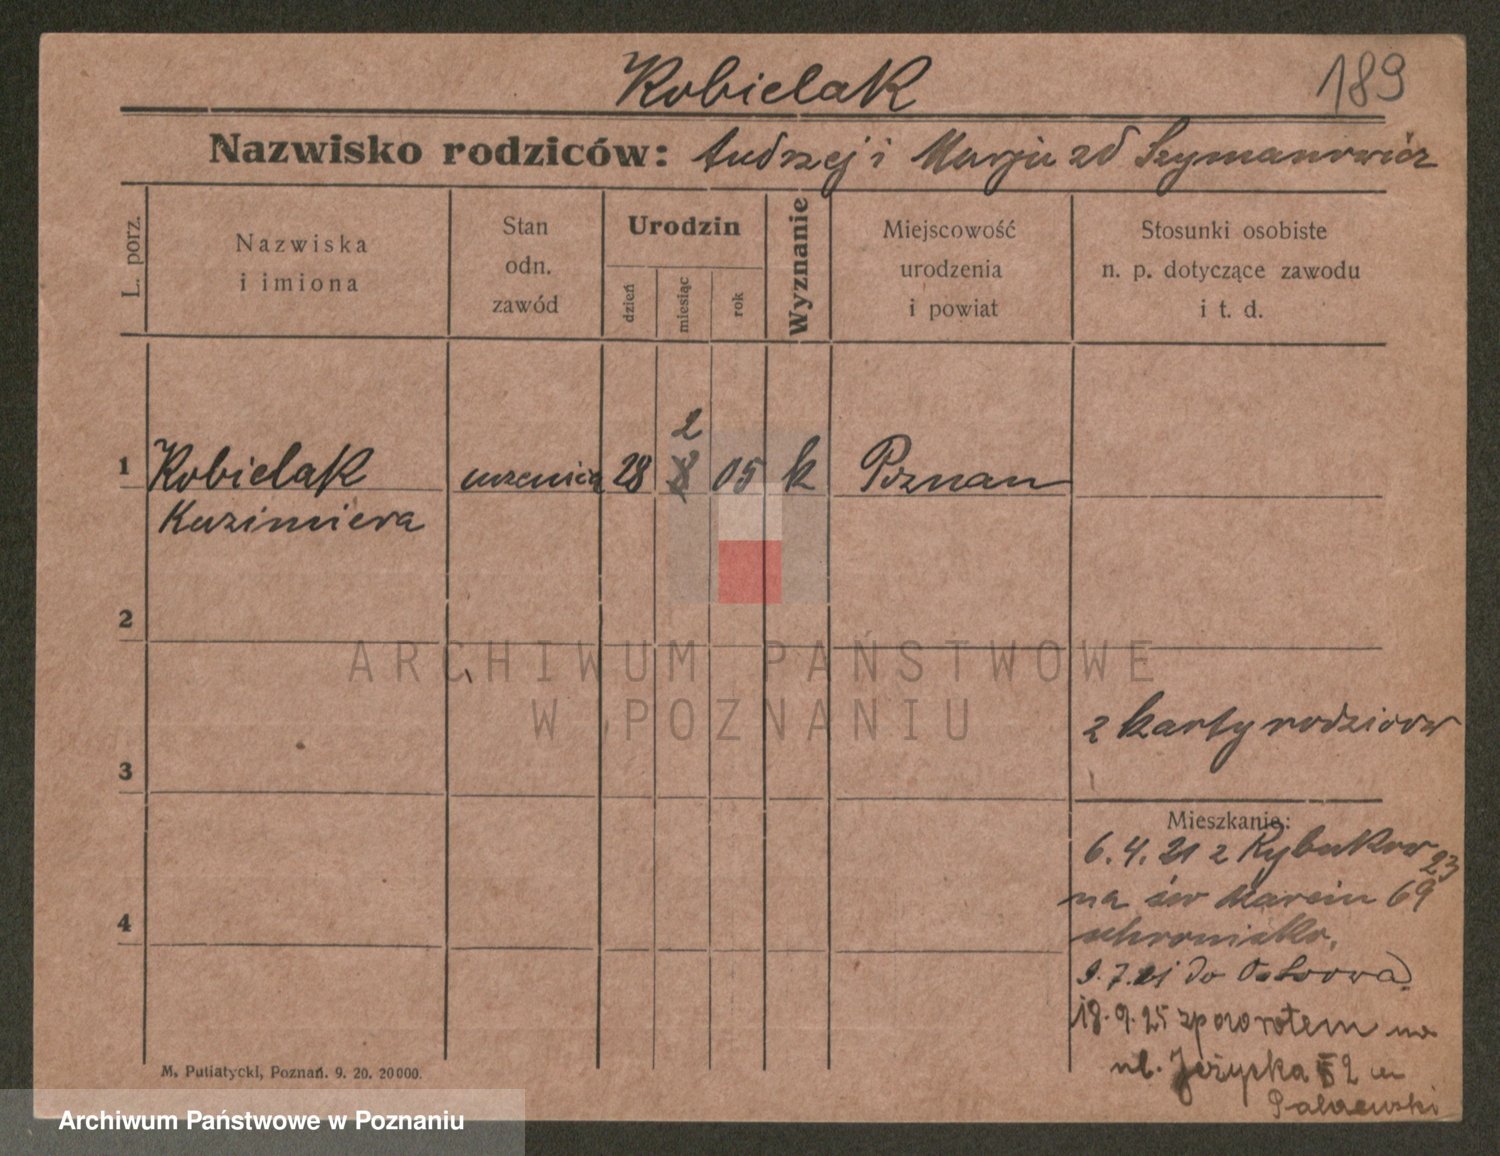 Kobielak
189
Nazwisko rodziców: Andrzej i Marja zd Szymanowicz
L. porz.
Nazwiska
i imiona
Stan
odn.
zawód
Urodzin
dzień
miesiąc
rok
Wyznanie
Miejscowość
urodzenia
i powiat
Stosunki osobiste
n. p. dotyczące zawodu
i t. d.
1 Kobielak uczenica 28 2 05 k Poznań
Kazimiera
2
ARCHIWUM PAŃSTWOWE
W POZNANIU
z karty rodziców
3
Mieszkanie:
6.4.21 z Rybaków 23
na św Marcin 69
schronisko,
9.7.21 do Ostrowa
4
18.9.25 zpowrotem na
ul. 2 u
M. Putiatycki, Poznań. 9. 20. 20000.
Archiwum Państwowe w Poznaniu